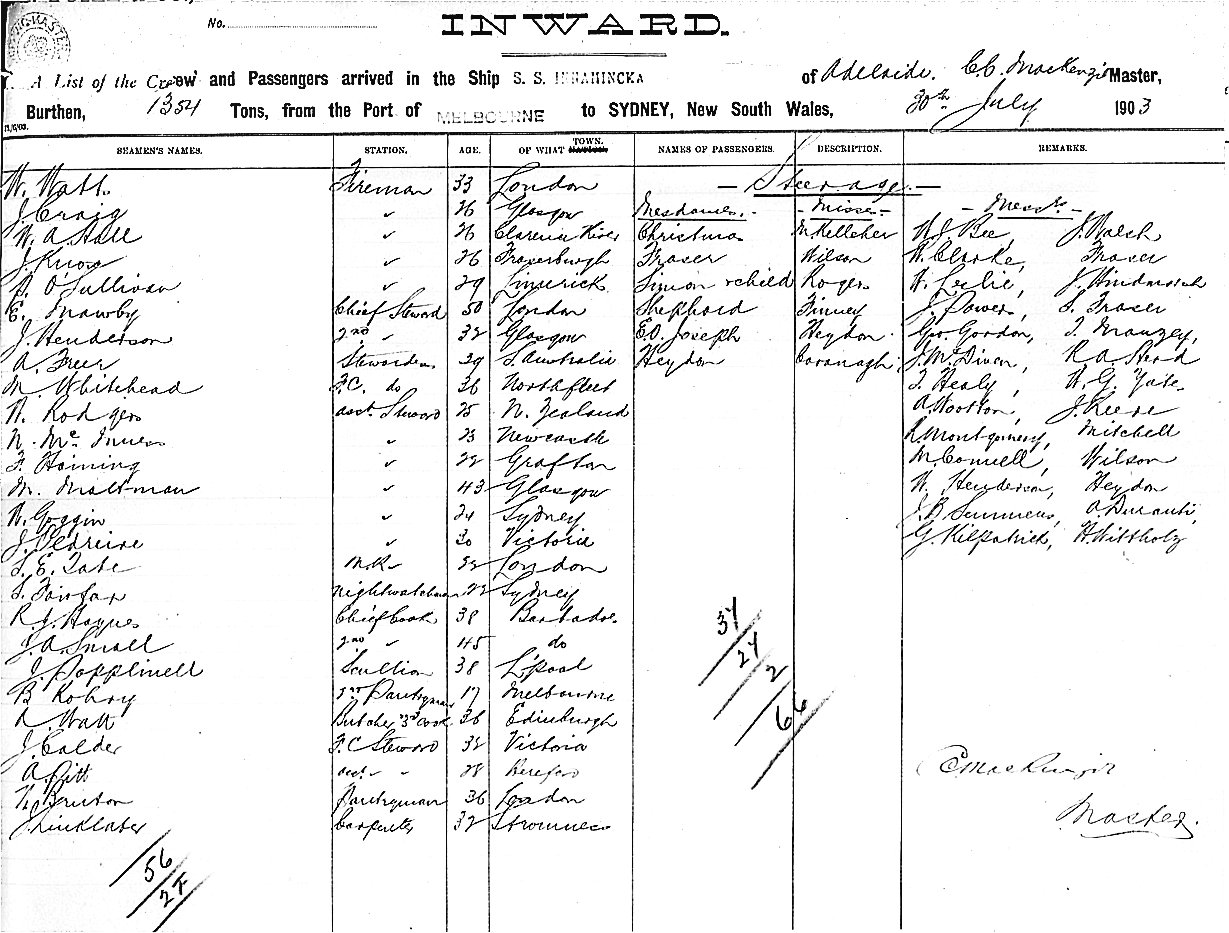 No. INWARD.
A List of the Crew and Passengers arrived in the Ship S. S. INNAMINCKA of Adelaide. CC. MacKenzie Master,
Burthen, 1354 Tons, from the Port of MELBOURNE to SYDNEY, New South Wales, 30th July 1903
SEAMEN'S NAMES. STATION. AGE. OF WHAT TOWN. NAMES OF PASSENGERS. DESCRIPTION. REMARKS.
W. Watt. Fireman 33 London — Steerage. —
J. Craig " 26 Glasgow Mesdames. - - Misses - - Messrs -
W. A. Hall " 26 Clarence River Christmas M. Kelleher W J Bee, J. Walsh
J. Knox " 26 Fraserburgh Fraser Wilson W. Clarke, Fraser
O'Sullivan " 29 Limerick Simon & child Rogers W. Leslie, J. Hindmarsh
E. Mawby Chief Steward 50 London Shephard Finney J. Power, S. Fraser
J. Henderson 2nd " 32 Glasgow E.D. Joseph Heydon Geo. Gordon,
A. Freer Stewardess 29 S. Australia Heydon Cavanagh R A Sherd
M. Whitehead F.C. do 36 Northfleet T. Healy,
W. Rodgers asst. Steward 25 N. Zealand A Wootton, J. Reeve
N. McInnes " 23 Newcastle R. Montgomery, Mitchell
F. " 22 Grafton M. Connell, Wilson
M. Maltman " 43 Glasgow W. Henderson, Heydon
W. Goggin " 24 Sydney J. B. A. Duranti,
J. " 30 Victoria G. Kilpatrick, H. Wittholz
S. E. Tate 22 London
S. Fairfax nightwatchman 22 Sydney
R. J. Haynes Chief Cook 38 Barbados
J. A. Small 2nd " 45 do
J. Popplewell Scullion 38 L'pool
B 2nd Pantryman 17 Melbourne
R Watt Butcher 3rd Cook 36 Edinburgh
J. Calder F. C Steward 32 Victoria
A. Pitt asst. " 28
W. Bruton Pantryman 36 London
J Linklater Carpenter 32 Stromness
34
24
2
66
C MacKenzie
Master.
56
27